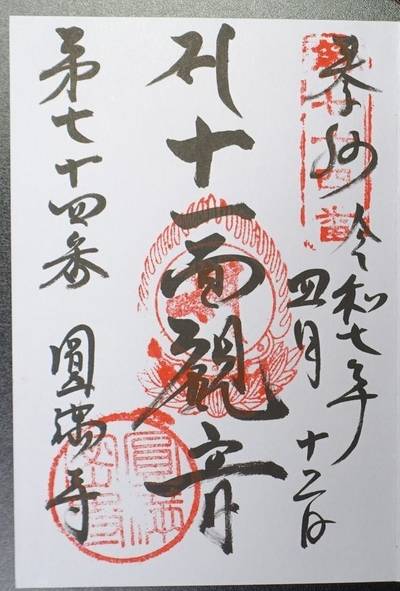 奉拝 令和七年
四月 十二日
十一面観音
第七十四番 圓満寺